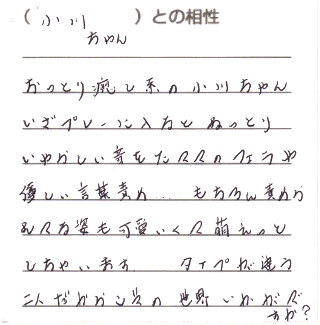 ( 小川
ちゃん ) との相性
おっとり癒し系の小川ちゃん
いざプレーに入ると ねっとり
いやらしい音をたててのフェラや
優しい言葉責め… もちろん責めら
れてる姿も可愛いくて萌えっと
しちゃいます タイプが違う
二人だから の世界 いかがで
すか?